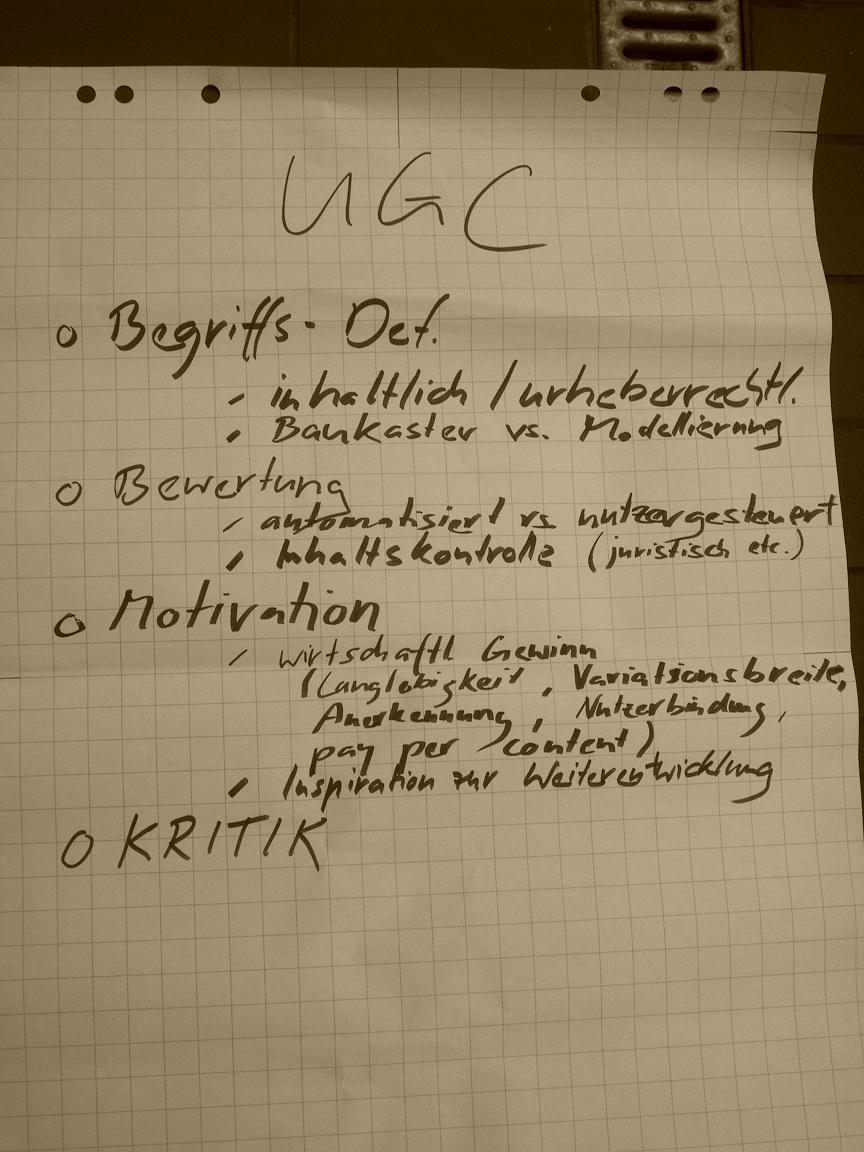 UGC
o Begriffs-Def.
- inhaltlich / urheberrechtl.
- Baukasten vs. Modellierung
o Bewertung
- automatisiert vs. nutzergesteuert
- Inhaltskontrolle (juristisch etc.)
o Motivation
- wirtschaftl. Gewinn
(Langlebigkeit, Variationsbreite,
Anerkennung, Nutzerbindung,
pay per content)
- Inspiration zur Weiterentwicklung
o KRITIK